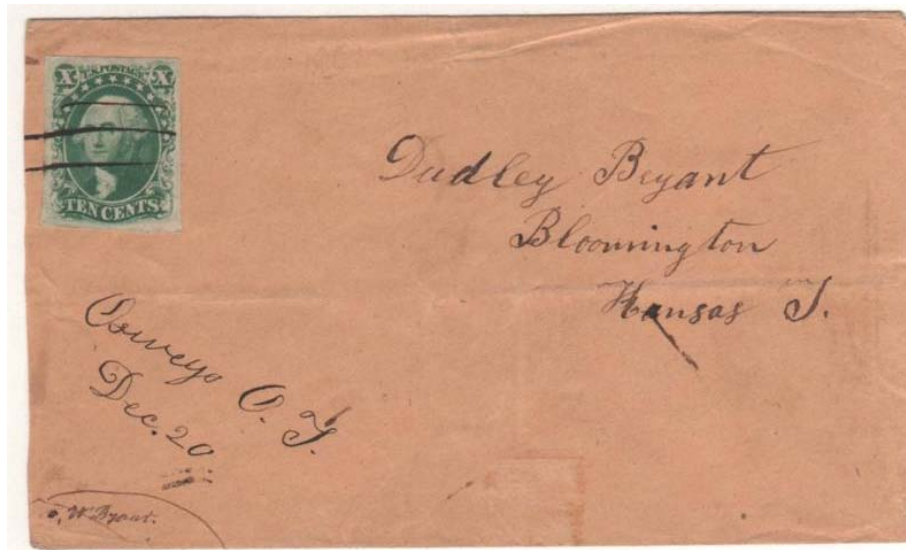 X U.S. POSTAGE X
TEN CENTS
Dudley Bryant
Bloomington
Kansas T.
Oswego O. T.
Dec. 20
W Bryant.